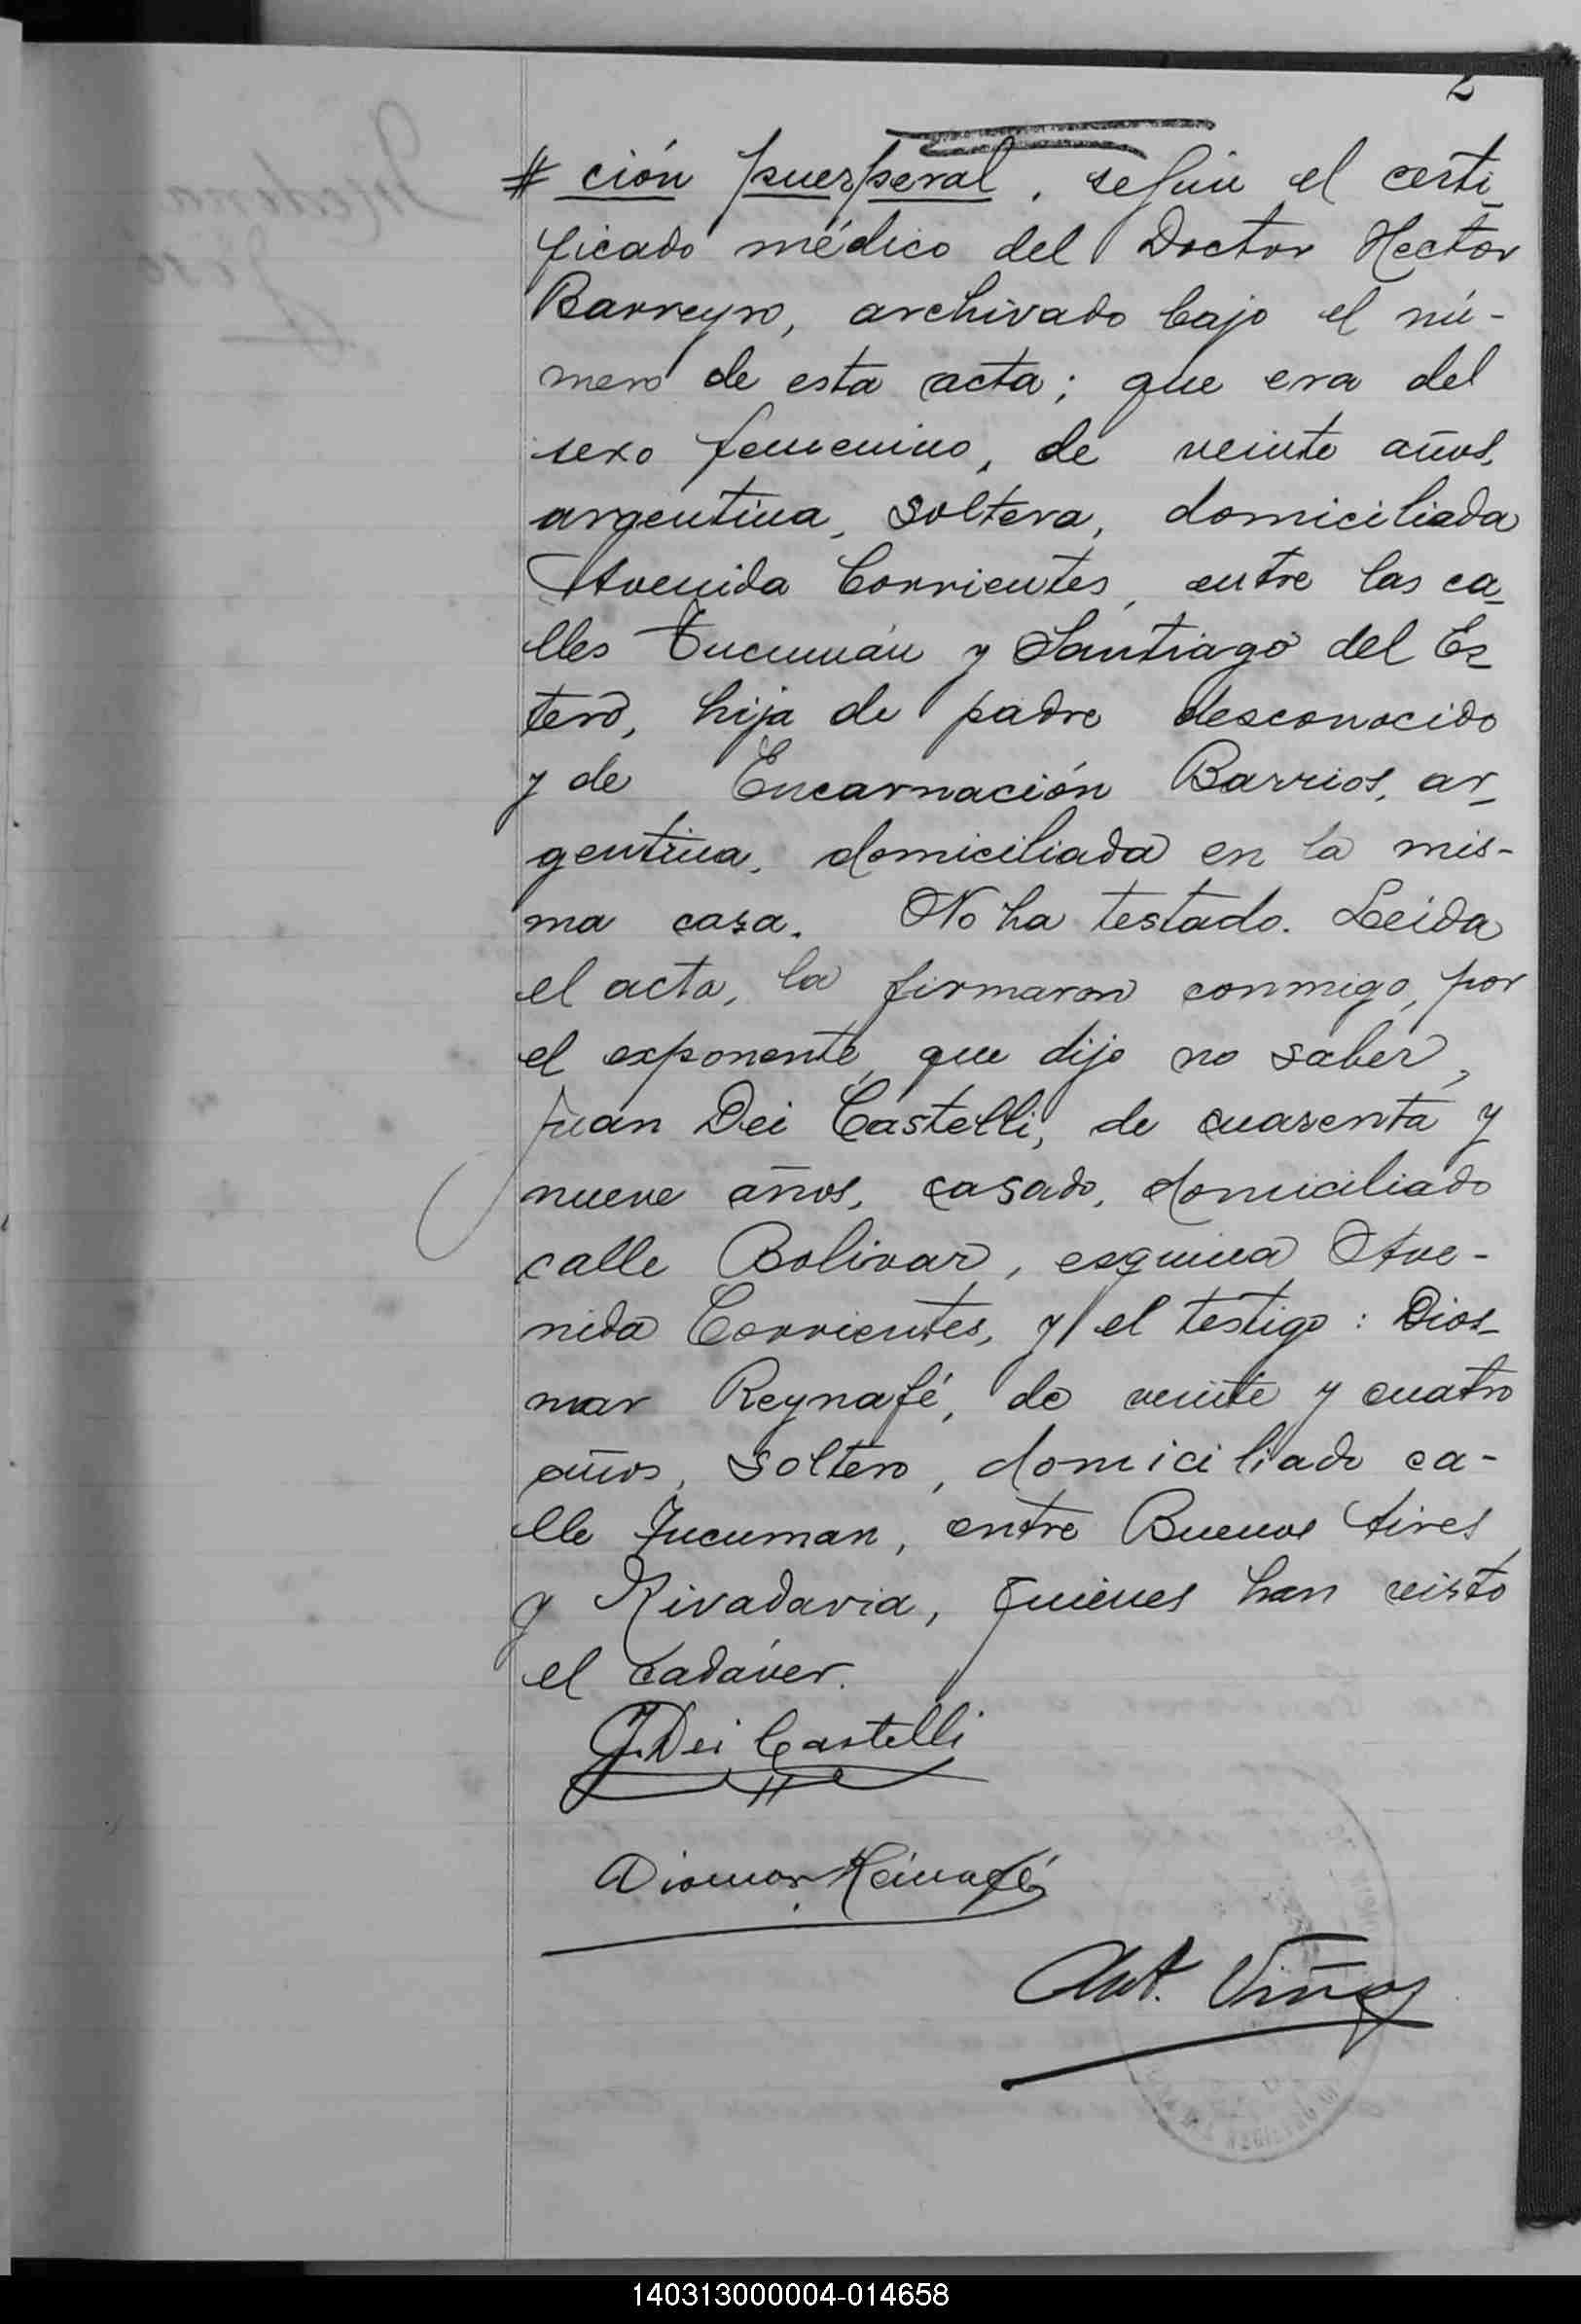 2
# ción puerperal, según el certi-
ficado médico del Doctor Hector
Barreyro, archivado bajo el nú-
mero de esta acta; que era del
sexo femenino, de veinte años,
argentina, soltera, domiciliada
Avenida Corrientes, entre las ca-
lles Tucumán y Santiago del Es-
tero, hija de padre desconocido
y de Encarnación Barrios, ar-
gentina, domiciliada en la mis-
ma casa. No ha testado. Leida
el acta, la firmaron conmigo, por
el exponente, que dijo no saber,
Juan Dei Castelli, de cuarenta y
nueve años, casado, domiciliado
calle Bolivar, esquina Ave-
nida Corrientes, y el testigo: Dios-
mar Reynafé, de veinte y cuatro
años, soltero, domiciliado ca-
lle Tucuman, entre Buenos Aires
y Rivadavia, quienes han visto
el cadáver.
J. Dei Castelli
Diosmar Reinafé
Ant. Viñas
140313000004-014658